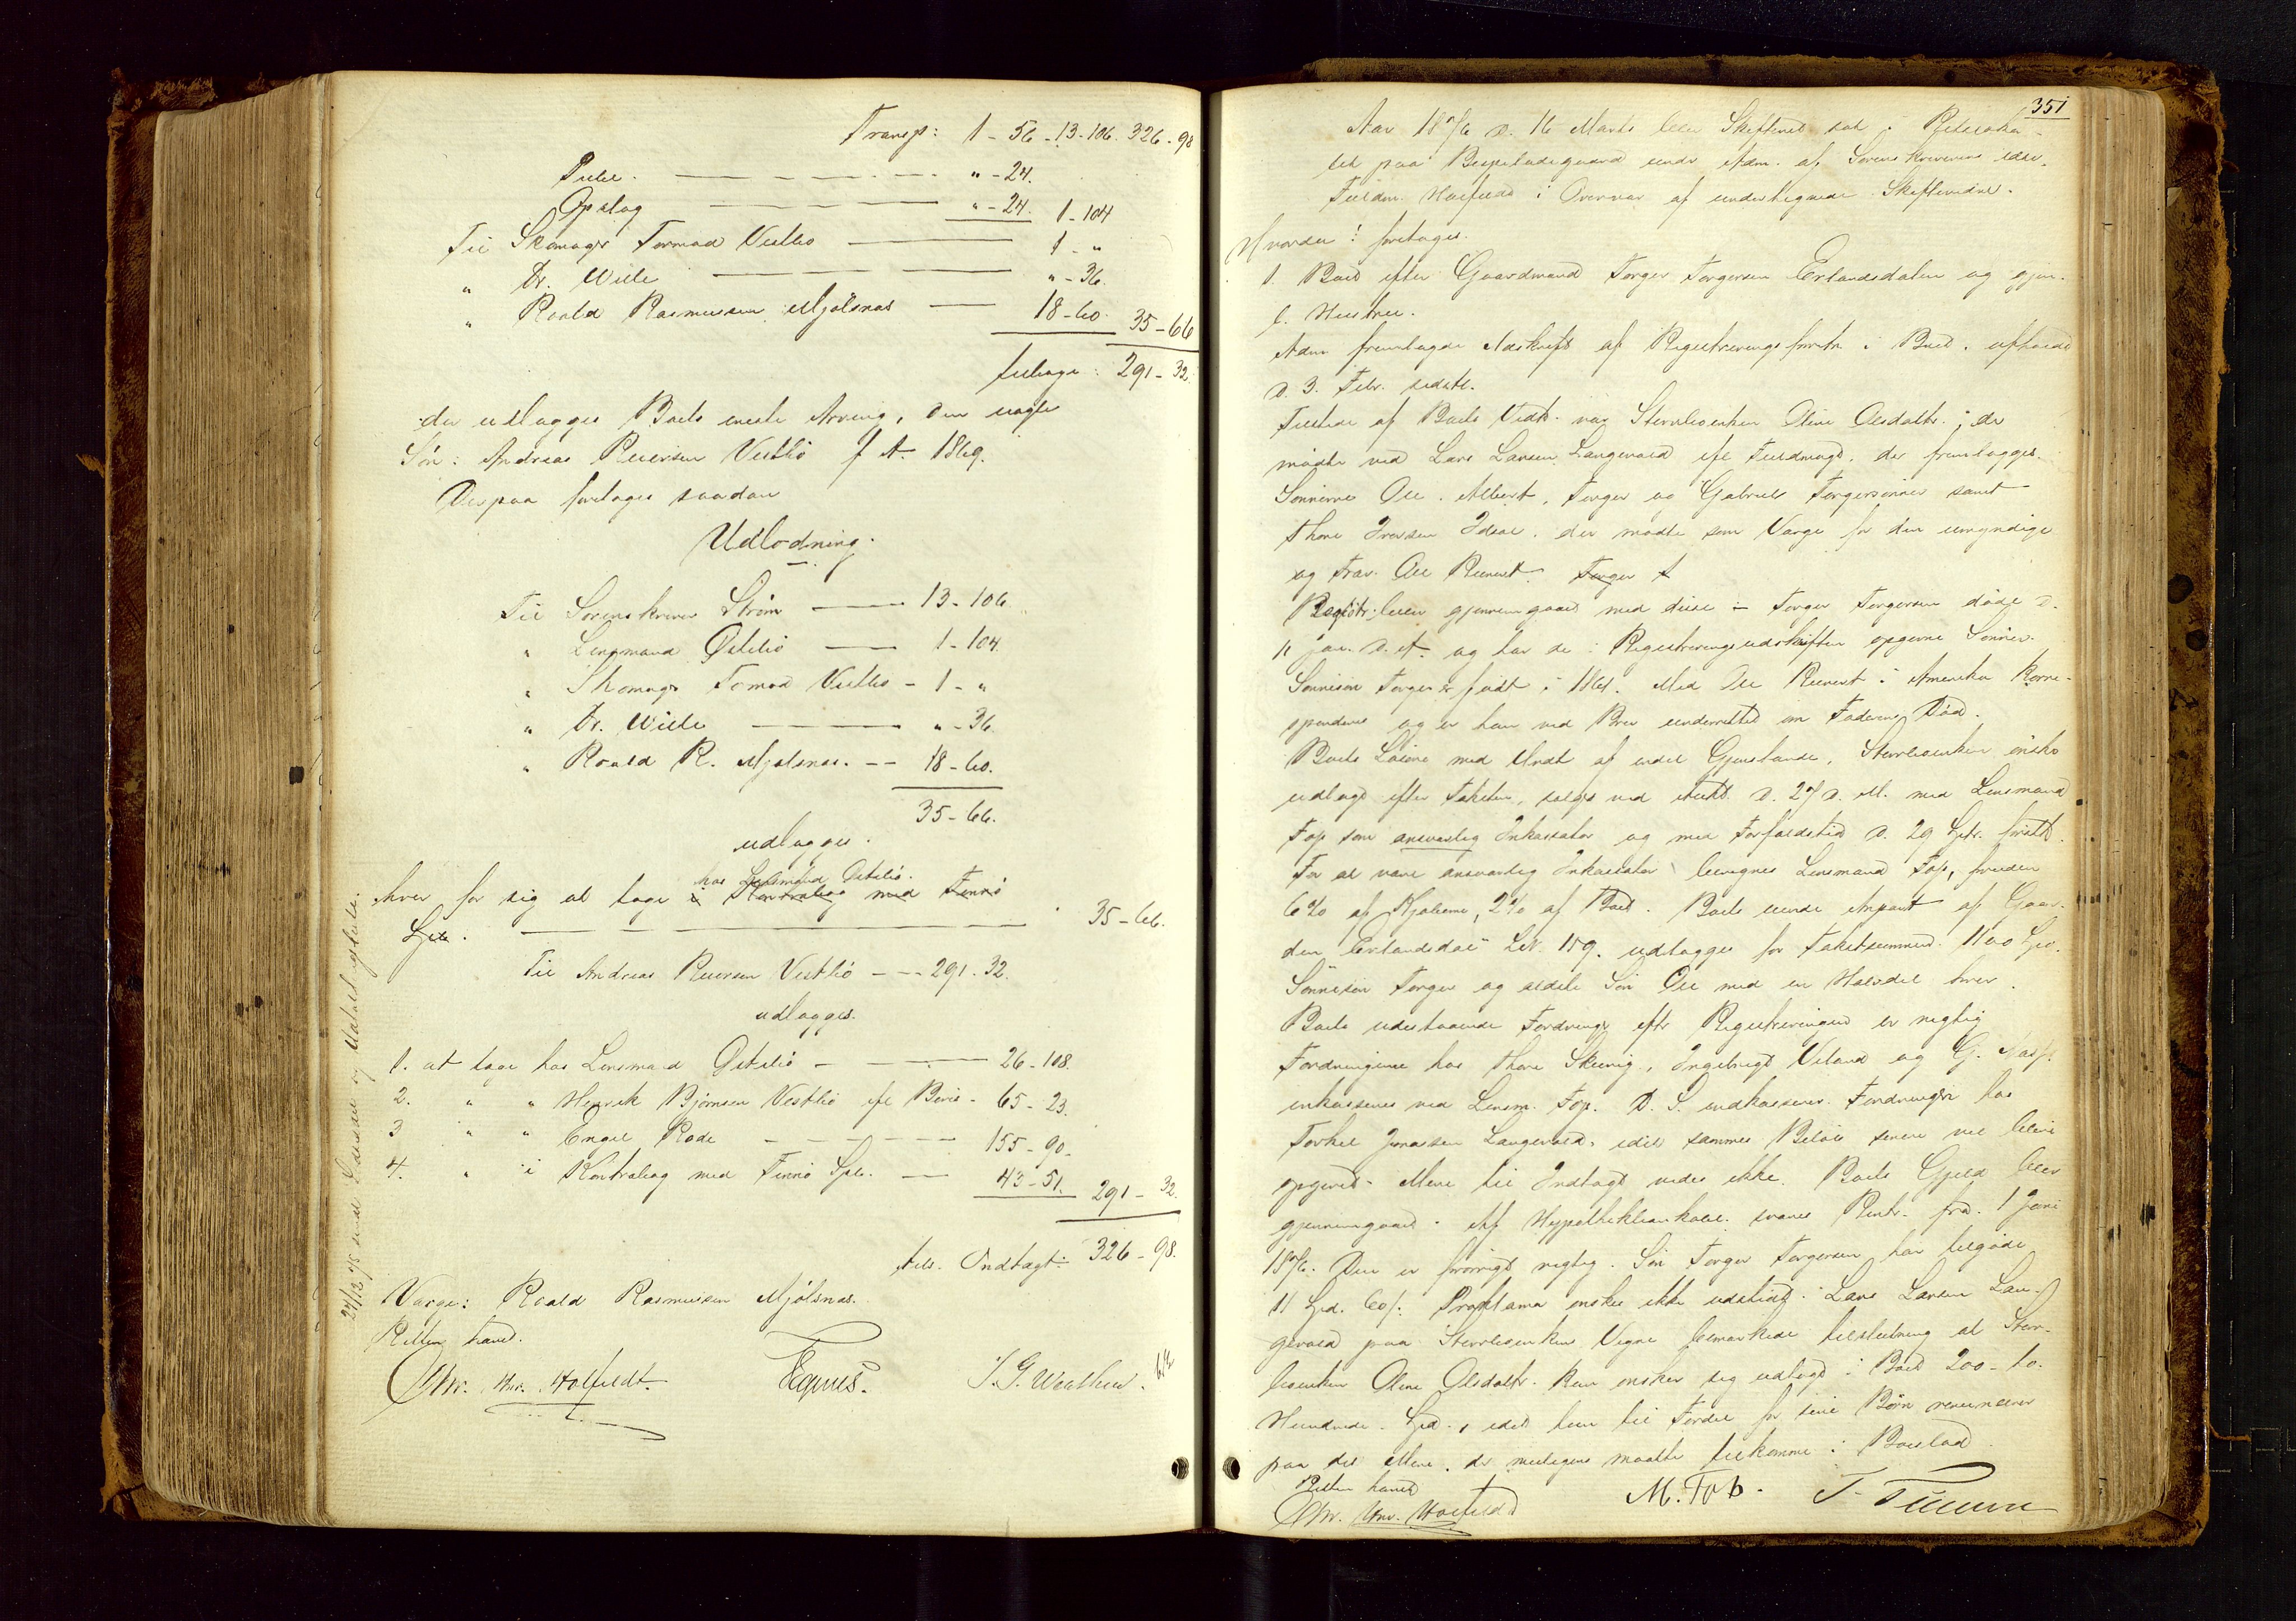 Transp: 1 - 56 - 13-106. 326-98
Opslag " - 24. 1-104
Til Skomager Tormod Vestbø 1 - "
" Dr. Wille " - 36.
" Roald Rasmussen Mjølsnæs 18-60. 35-66
tilbage: 291-32.
der udlægges Boets eneste Arving, den
Søn: Andreas Reiersen Vestbø f. A. 1869.
Derpaa foretages saadan
Udlodning.
Til Sorenskriver Strøm 13-106.
" Lensmand Østebø 1-104.
" Skomager Tormod Vestbø - 1 - "
" Dr. Wille " - 36.
" Roald R. Mjølsnæs. 18-60.
35-66.
udlægges.
hos Lensmand Østebø.
hver for sig at tage i Kontrabog med Finnø
Spb. 35-66.
Til Andreas Reiersen Vestbø 291-32.
udlægges.
1. at tage hos Lensmand Østebø 26-108.
2. " " Henrik Bjørnsen Vestbø efl. Bevis - 65-23.
3 " " Engel Rode 155-90.
4. " " i Kontrabog med Finnø Spb. 43-51. 291-32.
tils. Indtægt: 326-98.
Værge: Roald Rasmussen Mjølsnæs.
Retten hævet.
Chr. Hvr. Holfeldt.
351
Aar 1876 d. 16 Marts blev Skifteret sat i
paa under Adm. af Sorenskriverens edsv.
Fuldm. Holfeldt i Overvær af undertegnede Skiftevidner.
Hvorda: foretoges.
1. Boet efter Gaardmand Torger Torgersen Erlandsdalen og gjen-
l. Hustru.
Adm. fremlagde Udskrift af Registreringsforretn. i Boet, afholdt
d. 3. Febr. sidstl.
Tilstede af Boets Vedk. var Stervboenken Oline Olsdatter; der
mødte ved Lars Larsen Langevold efl. Fuldmagt, der fremlægges.
Sønnerne Ole, Albert, Torger og Gabriel Torgersønner samt
Thore Iversen, der mødte som Værge for den umyndige
og frav. Ole Reinert. Torger f
Registr. blev gjennemgaaet med disse - Torger Torgersen døde d.
11 Jan. d. A. og har de i Registreringsudskriften opgivne Sønner.
Sønnesøn Torger er født i 1861. Med Ole Reinert i Amerika korre-
sponderes og er han ved Brev underrettet om Faderens Død.
Boets Løsøre med Undt. af endel Gjenstande, Stervboenken ønsker
udlagt efter Taksten, sælges ved Aukt. d. 27 d. M. med Lensmand
Fop som ansvarlig Inkassator og med Forfaldstid d. 29 Sptr. førstk.
For at være ansvarlig Inkassator bevilges Lensmand Fop, foruden
6% af Kjøberne, 2% af Boet. Boets Anpart af Gaar-
den "Erlandsdal" L.N. 159, udlægges for Takstsummen 1100 Spd.
Sønnesøn Torger og ældste Søn Ole med en Halvdel hver.
Boets udestaaende Fordringer efter Registreringen er rigtig
Fordringerne hos Thore, Ingebrigt Veland og G.
inkasseres ved Lensm. Fop. D. S. indkasserer Fordringen hos
Torkel Jonassen Langevold, idet sammes Beløb senere vil blive
opgivet. Mere til Indtægt vides ikke. Boets Gjeld blev
gjennemgaaet. Af Hypothekbanklaan svares Rente fra 1 Juni
1876. Den er forøvrigt rigtig. Søn Torger Torgersen har tilgode
11 Spd. 60 s. Proklama ønskes ikke udstedt. Lars Larsen Lan-
gevold paa Stervboenkens Vegne bemærkede tilslutning at Sterv-
boenken Oline Olsdatter kun ønsker sig udlagt i Boet 200 - to
Hundrede - Spd., idet hun til Fordel for sine Børn renuncerer
paa det Mere, der muligens maatte tilkomme i Boeslod.
Retten hævet
Chr. Hvr. Holfeldt M. Fop.